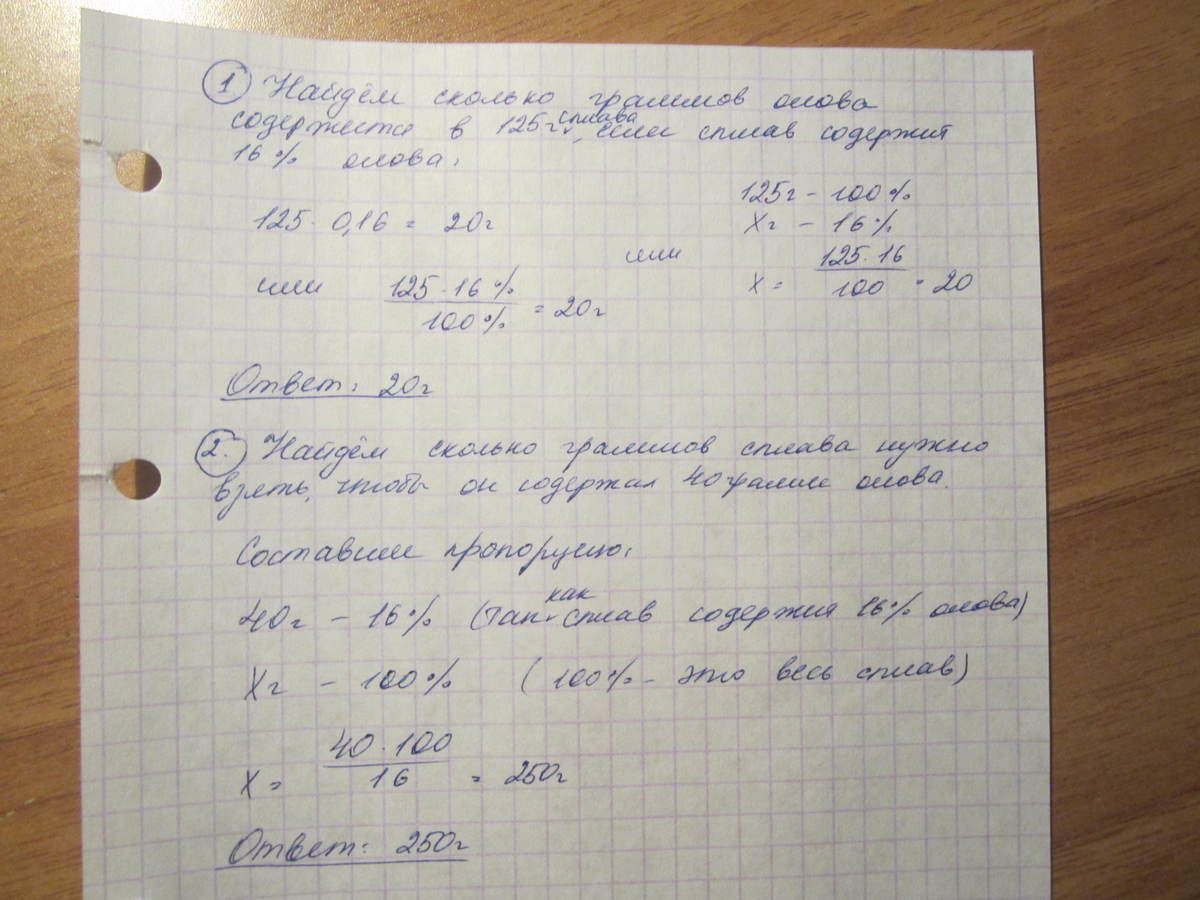 1 Найдём сколько граммов олова
содержится в 125г сплава, если сплав содержит
16% олова:
125г - 100%
125 · 0,16 = 20г
Xг - 16%
или
или 125·16% / 100% = 20г
X = 125·16 / 100 = 20
Ответ: 20г
2. Найдём сколько граммов сплава нужно
взять, чтобы он содержал 40 грамм олова.
Составим пропорцию:
40г - 16% (так как сплав содержит 16% олова)
Xг - 100% (100% - это весь сплав)
X = 40·100 / 16 = 250г
Ответ: 250г